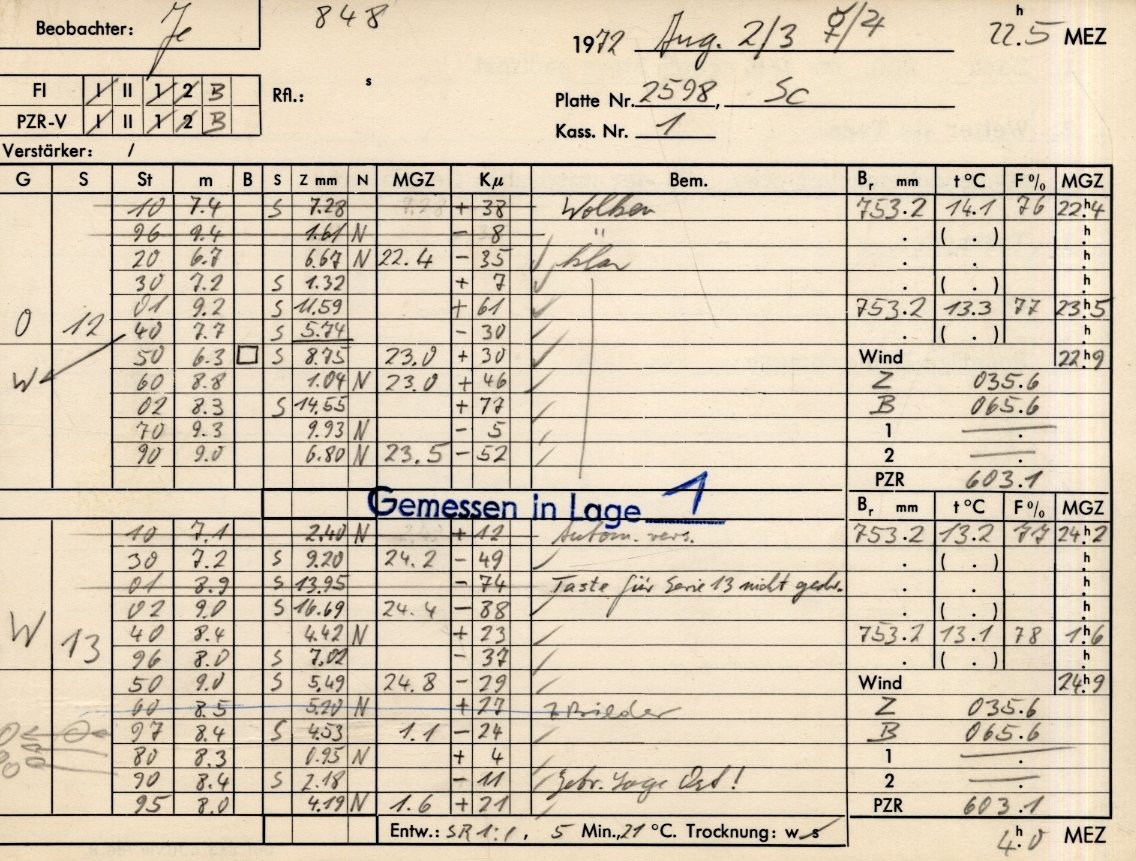 Beobachter: Je 848 1972 Aug. 2/3 22.5 h MEZ
FI I II 1 2 B Rfl.: s
Platte Nr. 2598, Sc
PZR-V I II 1 2 B
Kass. Nr. 1
Verstärker: /
G S St m B S Z mm N MGZ Kμ Bem. Br mm t °C F % MGZ
10 7.4 S 7.28 + 38 Wolken 753.2 14.1 76 22h4
96 9.4 1.61 N - 8 " . ( . ) h
20 6.7 6.67 N 22.4 - 35 ✓ klar . . h
30 7.2 S 1.32 + 7 ✓ . ( . ) h
01 9.2 S 11.59 + 61 ✓ 753.2 13.3 77 23h5
O 12 40 7.7 S 5.74 - 30 ✓ . ( . ) h
50 6.3 □ S 8.75 23.0 + 30 ✓ Wind 22h9
W 60 8.8 1.04 N 23.0 + 46 ✓ Z 035.6
02 8.3 S 14.55 + 77 ✓ B 065.6
70 9.3 9.93 N - 5 ✓ 1 .
90 9.0 6.80 N 23.5 - 52 ✓ 2 .
PZR 603.1
Gemessen in Lage 1
Br mm t °C F % MGZ
10 7.1 2.40 N + 12 Autom. vers. 753.2 13.2 77 24h2
30 7.2 S 9.20 24.2 - 49 ✓ . ( . ) h
01 8.9 S 13.95 - 74 Taste für Serie 13 nicht gedr. . . h
02 9.0 S 16.69 24.4 - 88 ✓ . ( . ) h
W 13 40 8.4 4.42 N + 23 ✓ 753.2 13.1 78 1h6
96 8.0 S 7.02 - 37 ✓ . ( . ) h
50 9.0 S 5.49 24.8 - 29 ✓ Wind 24h9
60 8.5 5.20 N + 27 7 Bilder Z 035.6
97 8.4 S 4.53 1.1 - 24 ✓ B 065.6
80 8.3 0.95 N + 4 ✓ 1 .
90 8.4 S 2.18 - 11 ✓ Gebr. Lage Ost! 2 .
95 8.0 4.19 N 1.6 + 21 ✓ PZR 603.1
Entw.: SR 1:1, 5 Min., 21 °C. Trocknung: w s 4h0 MEZ